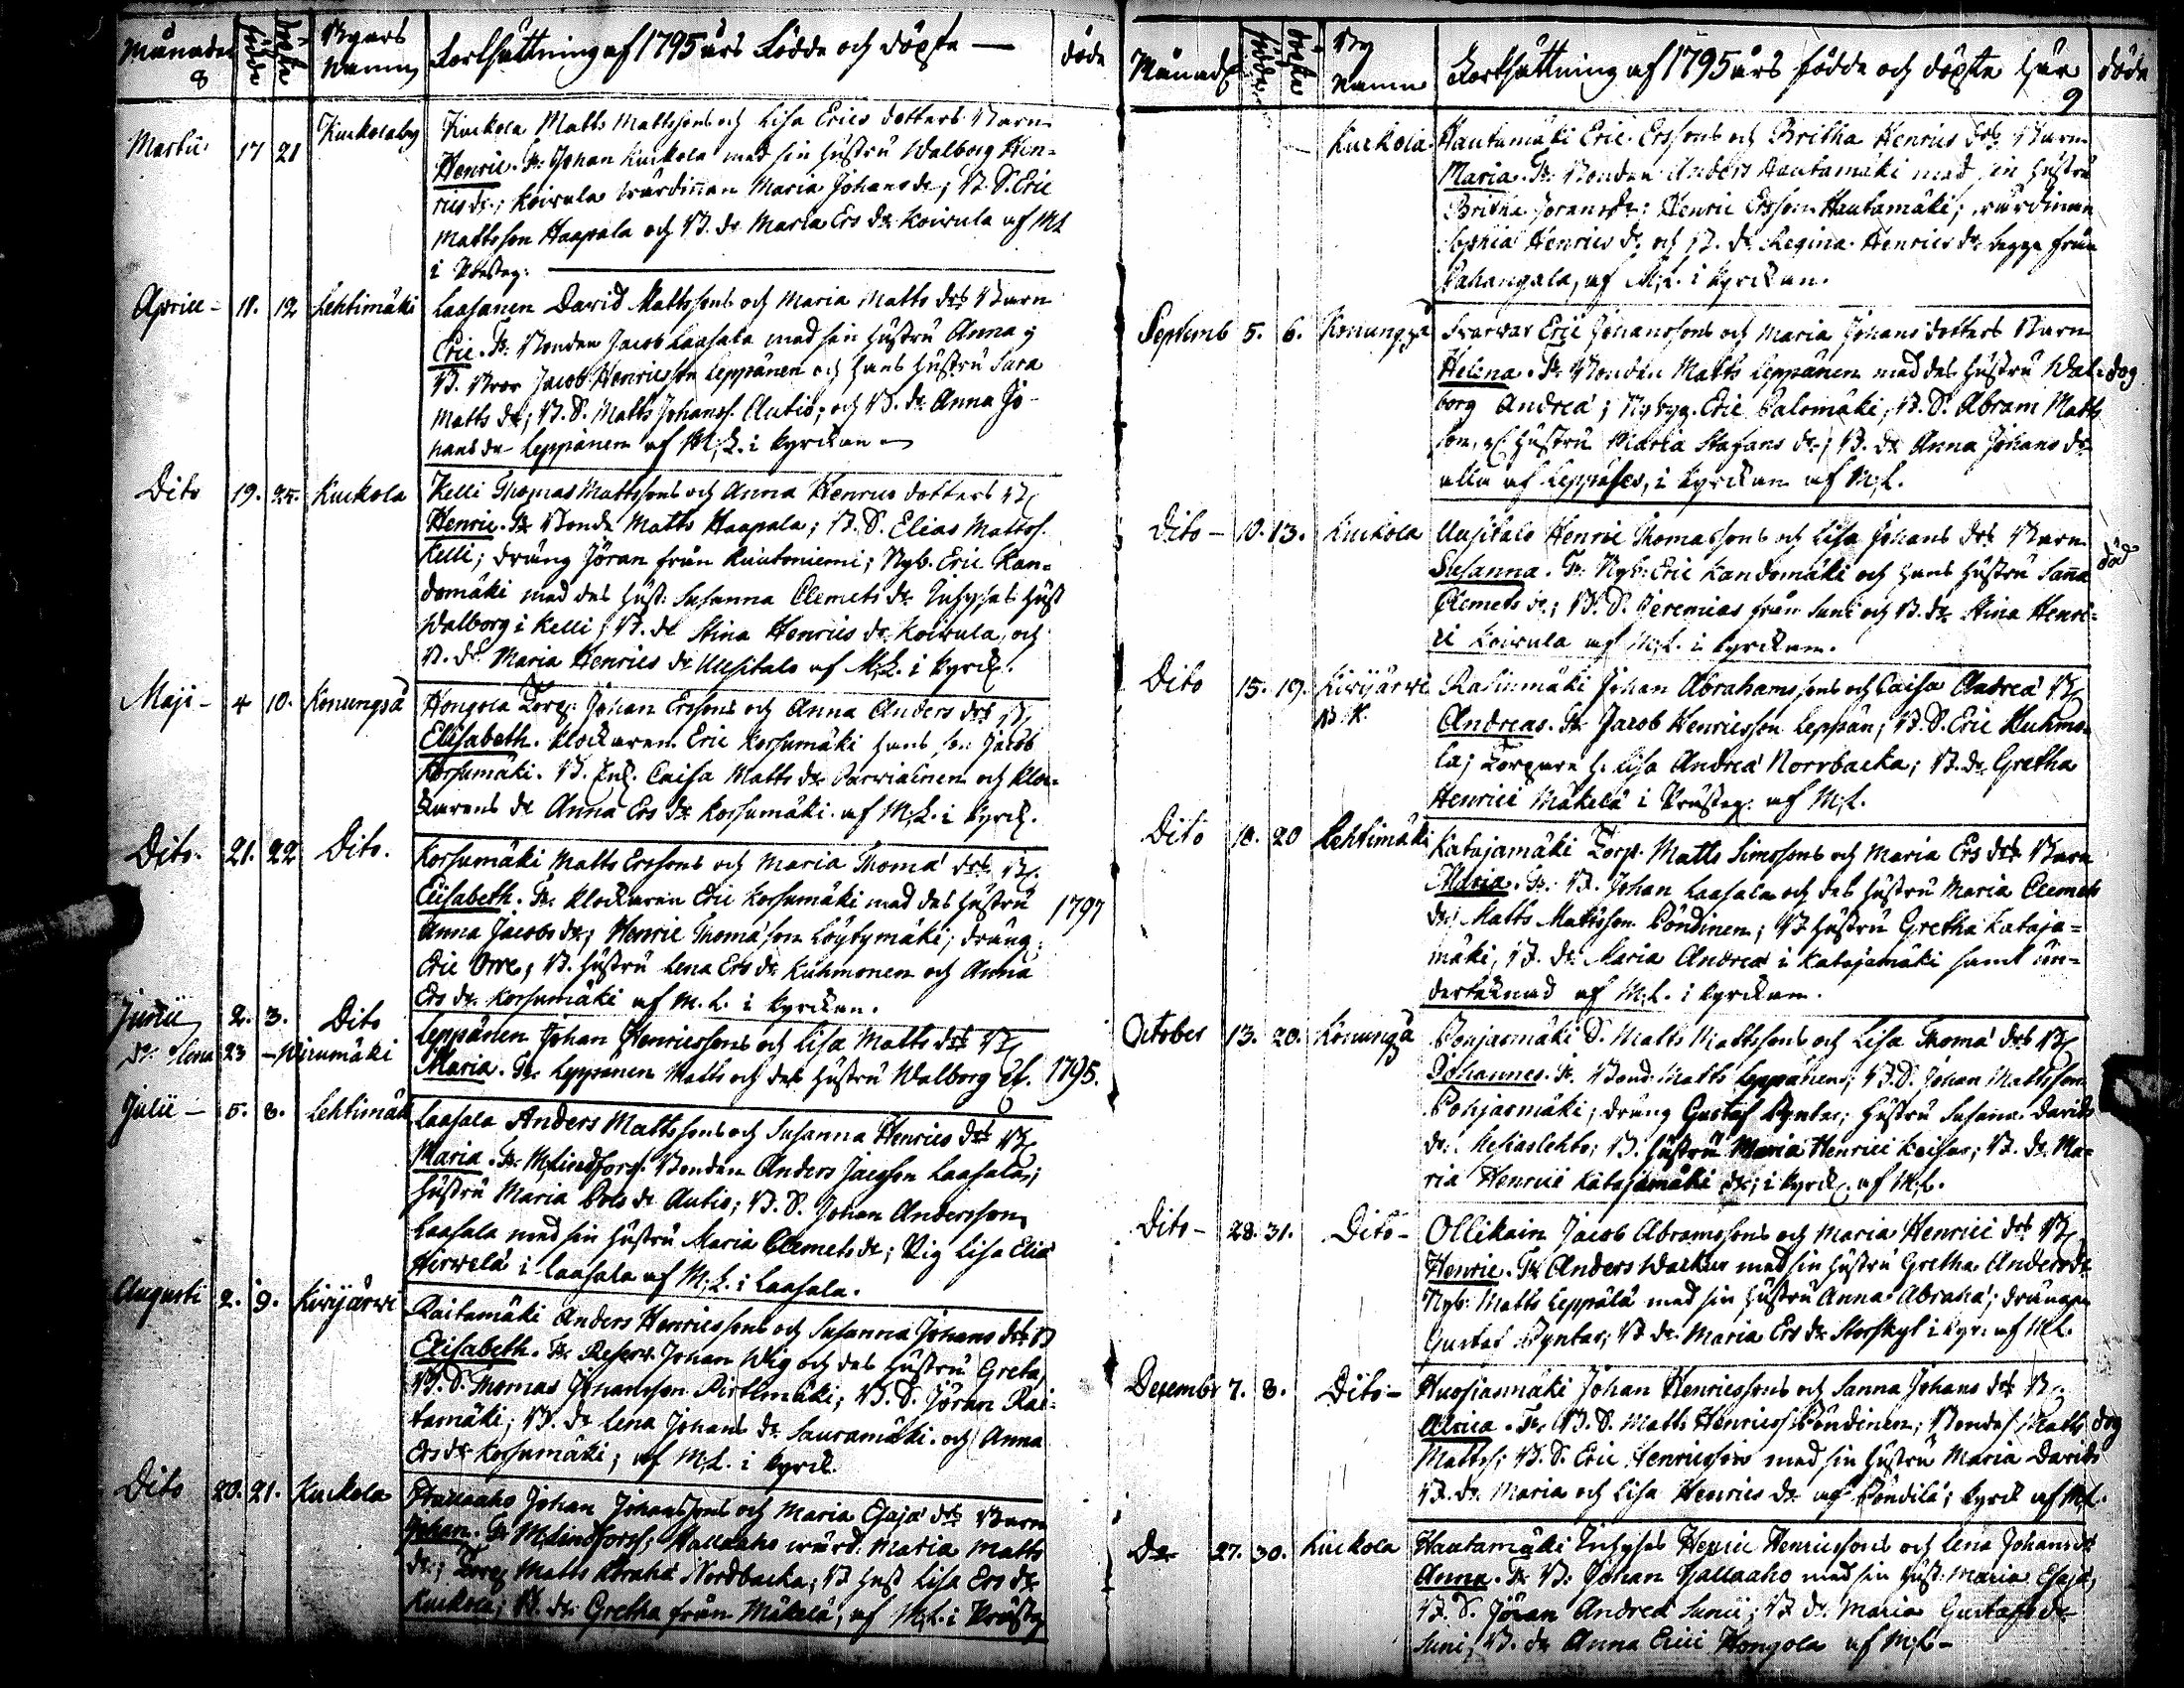 Månader födde döpte Byars Namn Fortsättning af 1795 års Födde och döpte — döde
8
Martii 17 21 Kuckolaby Kuckola Matts Mattssons och Lisa Erics dotters Barn
Henric. Fr. Johan Kuckola med sin hustru Walborg Hen-
rics dr; Koivula wärdinnan Maria Johans dr; B. S. Eric
Mattsson Haapala och B. dr Maria Ers dr Koivula af ML
i Prösteg:
Aprill - 11. 12 Lehtimäki Laasanen David Mattssons och Maria Matts drs Barn
Eric. Fr. Bonden Jacob Laasala med sin hustru Anna;
B. Bror Jacob Henricsson Leppänen och hans hustru Sara
Matts dr; B. S. Matts Johanss. Autio; och B. dr Anna Jo-
hans dr Leppänen af M;L. i kyrckan
Dito 19. 25. Kuckola Kelli Thomas Mattssons och Anna Henrics dotters B.
Henric. Fr Bond. Matts Haapala; B. S. Elias Mattss.
Kelli; dräng Jöran från Kuutoniemi; Nyb. Eric Kan-
domäki med des hust: Susanna Clemets dr Inhyses hust
Walborg i Kelli; B. dr Stina Henrics dr Koivula, och
B. dr. Maria Henrics dr Uusitalo af M;L. i kyrck.
Maji - 4 10. Konungså Hongola Torp. Johan Erssons och Anna Anders drs B.
Elisabeth. Klockaren Eric Korsumäki hans son Jacob
Korsumäki. B. Caisa Matts dr och Kloc-
karens dr Anna Ers dr Korsumäki af M;L. i kyrck.
Dito. 21. 22 Dito. Korsumäki Matts Erssons och Maria Thomæ drs B.
Elisabeth. Fr. Klockaren Eric Korsumäki med des hustru 1797
Anna Jacobs dr; Henric Thomæ son Löytymäki; dräng
Eric Orre; B. hustru Lena Ers dr Kuhmonen och Anna
Ers dr. Korsumäki af M. L. i kyrckan.
Junii 2. 3. Dito Leppänen Johan Henricssons och Lisa Matts drs B
dr. Lena 23 - Maria. Fr. Leppänen Matts och des hustru Walborg 1795.
Julii - 5. 8. Lehtimäk Laasala Anders Mattssons och Susanna Henrics drs B
Maria. Fr. M. Lindfors. Bonden Anders Jacsson Laasala;
hustru Maria dr Autio; B. S. Johan Andersson
Laasala med sin hustru Maria Clemets dr; Pig Lisa Eliæ
Hirvelä i Laasala af M;L. i Laasala.
Augusti 2. 9. Kivijärvi Raitamäki Anders Henricssons och Susanna Johans drs B
Elisabeth. Fr. Reserv. Johan Wig och des hustru Greta,
B. S. Thomas Johansson Pirttimäki; B. S. Jöran Rai-
tamäki; B. dr Lena Johans dr Sauramäki och Anna
Ers dr Korsumäki; af M;L. i kyrck.
Dito 20. 21. Kuckola Hallaaho Johan Johanssons och Maria Esajæ drs Barn
Johan. Fr M. Lindfors; Hallaaho wärd. Maria Matts
dr; Torp. Matts Abrahæ Nordbacka; B. hust Lisa Ers dr
Kuckola; B. dr Gretha från Mäkelä, af M;L. i Prösteg
Månad födde döpte By Namn Fortsättning af 1795 års födde och döpte här döde
9
Kuckola Hautamäki Eric Erssons och Britha Henrics drs Barn
Maria. Fr. Bonden Anders Hautamäki med sin hustru
Britha Jörans dr; Henric Ersson Hautamäki; wärdinan
Sophia Henrics dr och B. dr Regina Henrics dr begge från
Pahangala, af M;L. i kyrckan.
Septemb 5. 6. Konungså Svarvar Eric Johanssons och Maria Johans dotters Barn
Helena. Fr. Bonden Matts Leppänen med des hustru Wal- dog
borg Andreæ; Nybyg. Eric Palomäki, B. S. Abram Matts
son, hustru Maria Stafans dr; B. dr Anna Johans dr
alla af Leppäses, i kyrckan af M;L.
Dito - 10. 13. Kuckola Uusitalo Henric Thomassons och Lisa Johans drs Barn
Susanna. Fr. Nyb: Eric Kandomäki och hans hustru Sanna död
Clemets dr; B. S. Jeremias från Suni och B. dr Stina Henri-
ci Koivula af M;L. i kyrckan.
Dito 15. 19. Kivijärvi Rasinmäki Johan Abrahamssons och Caisa Andreæ B
Andreas. Fr Jacob Henricsson Leppän; B. S. Eric Kuhmo-
la; Torpare h. Lisa Andreæ Norrbacka; B. dr Gretha
Henrici Mäkelä i Prösteg. af M;L.
Dito 18. 20 Lehtimäki Katajamäki Torp. Matts Simssons och Maria Ers drs Barn
Maria. Fr. B. Johan Laasala och des hustru Maria Clemets
dr; Matts Mattsson Pöndinen; B hustru Gretha Kataja-
mäki; B. dr. Maria Andreæ i Katajamäki samt un-
dertecknad af M;L. i kyrckan.
October 13. 20. Konungså Pohjasmäki S. Matts Mattssons och Lisa Thomæ drs B
Johannes. Fr. Bond. Matts Leppänen; B. S. Johan Mattsson
Pohjasmäki; dräng Gustaf Pyntar; hustru Susanna Davids
dr. B. hustru Maria Henrici Keisar; B. dr. Ma-
ria Henrici Katajamäki dr; i kyrck. af M;L.
Dito - 28. 31. Dito - Ollikain Jacob Abramssons och Maria Henrici drs B
Henric. Fr Anders med sin hustru Gretha Anders dr
Nyb: Matts Leppälä med sin hustru Anna Abrahæ; drängen
Gustaf Pyntar; B dr. Maria Ers dr Storskyt i kyr: af ML.
Decembr 7. 8. Dito - Huosianmäki Johan Henricssons och Sanna Johans drs B.
Ulrica. Fr. B. S. Matts Henricss Pöndinen; Matts dog
Mattss; B. S. Eric Henricsson med sin hustru Maria Davids
B. dr. Maria och Lisa Henrics dr af Pöndilä; kyrck af ML.
Dr 27. 30. Kuckola Hautamäki Inhyses Henric Henricssons och Lena Johans dr
Anna. Fr B. Johan Hallaaho med sin hust: Maria Esajæ;
B. S. Jöran Andreæ Sunii; B dr. Maria Gustafs dr
Suni; B. dr Anna Erici Hongola af M;L -